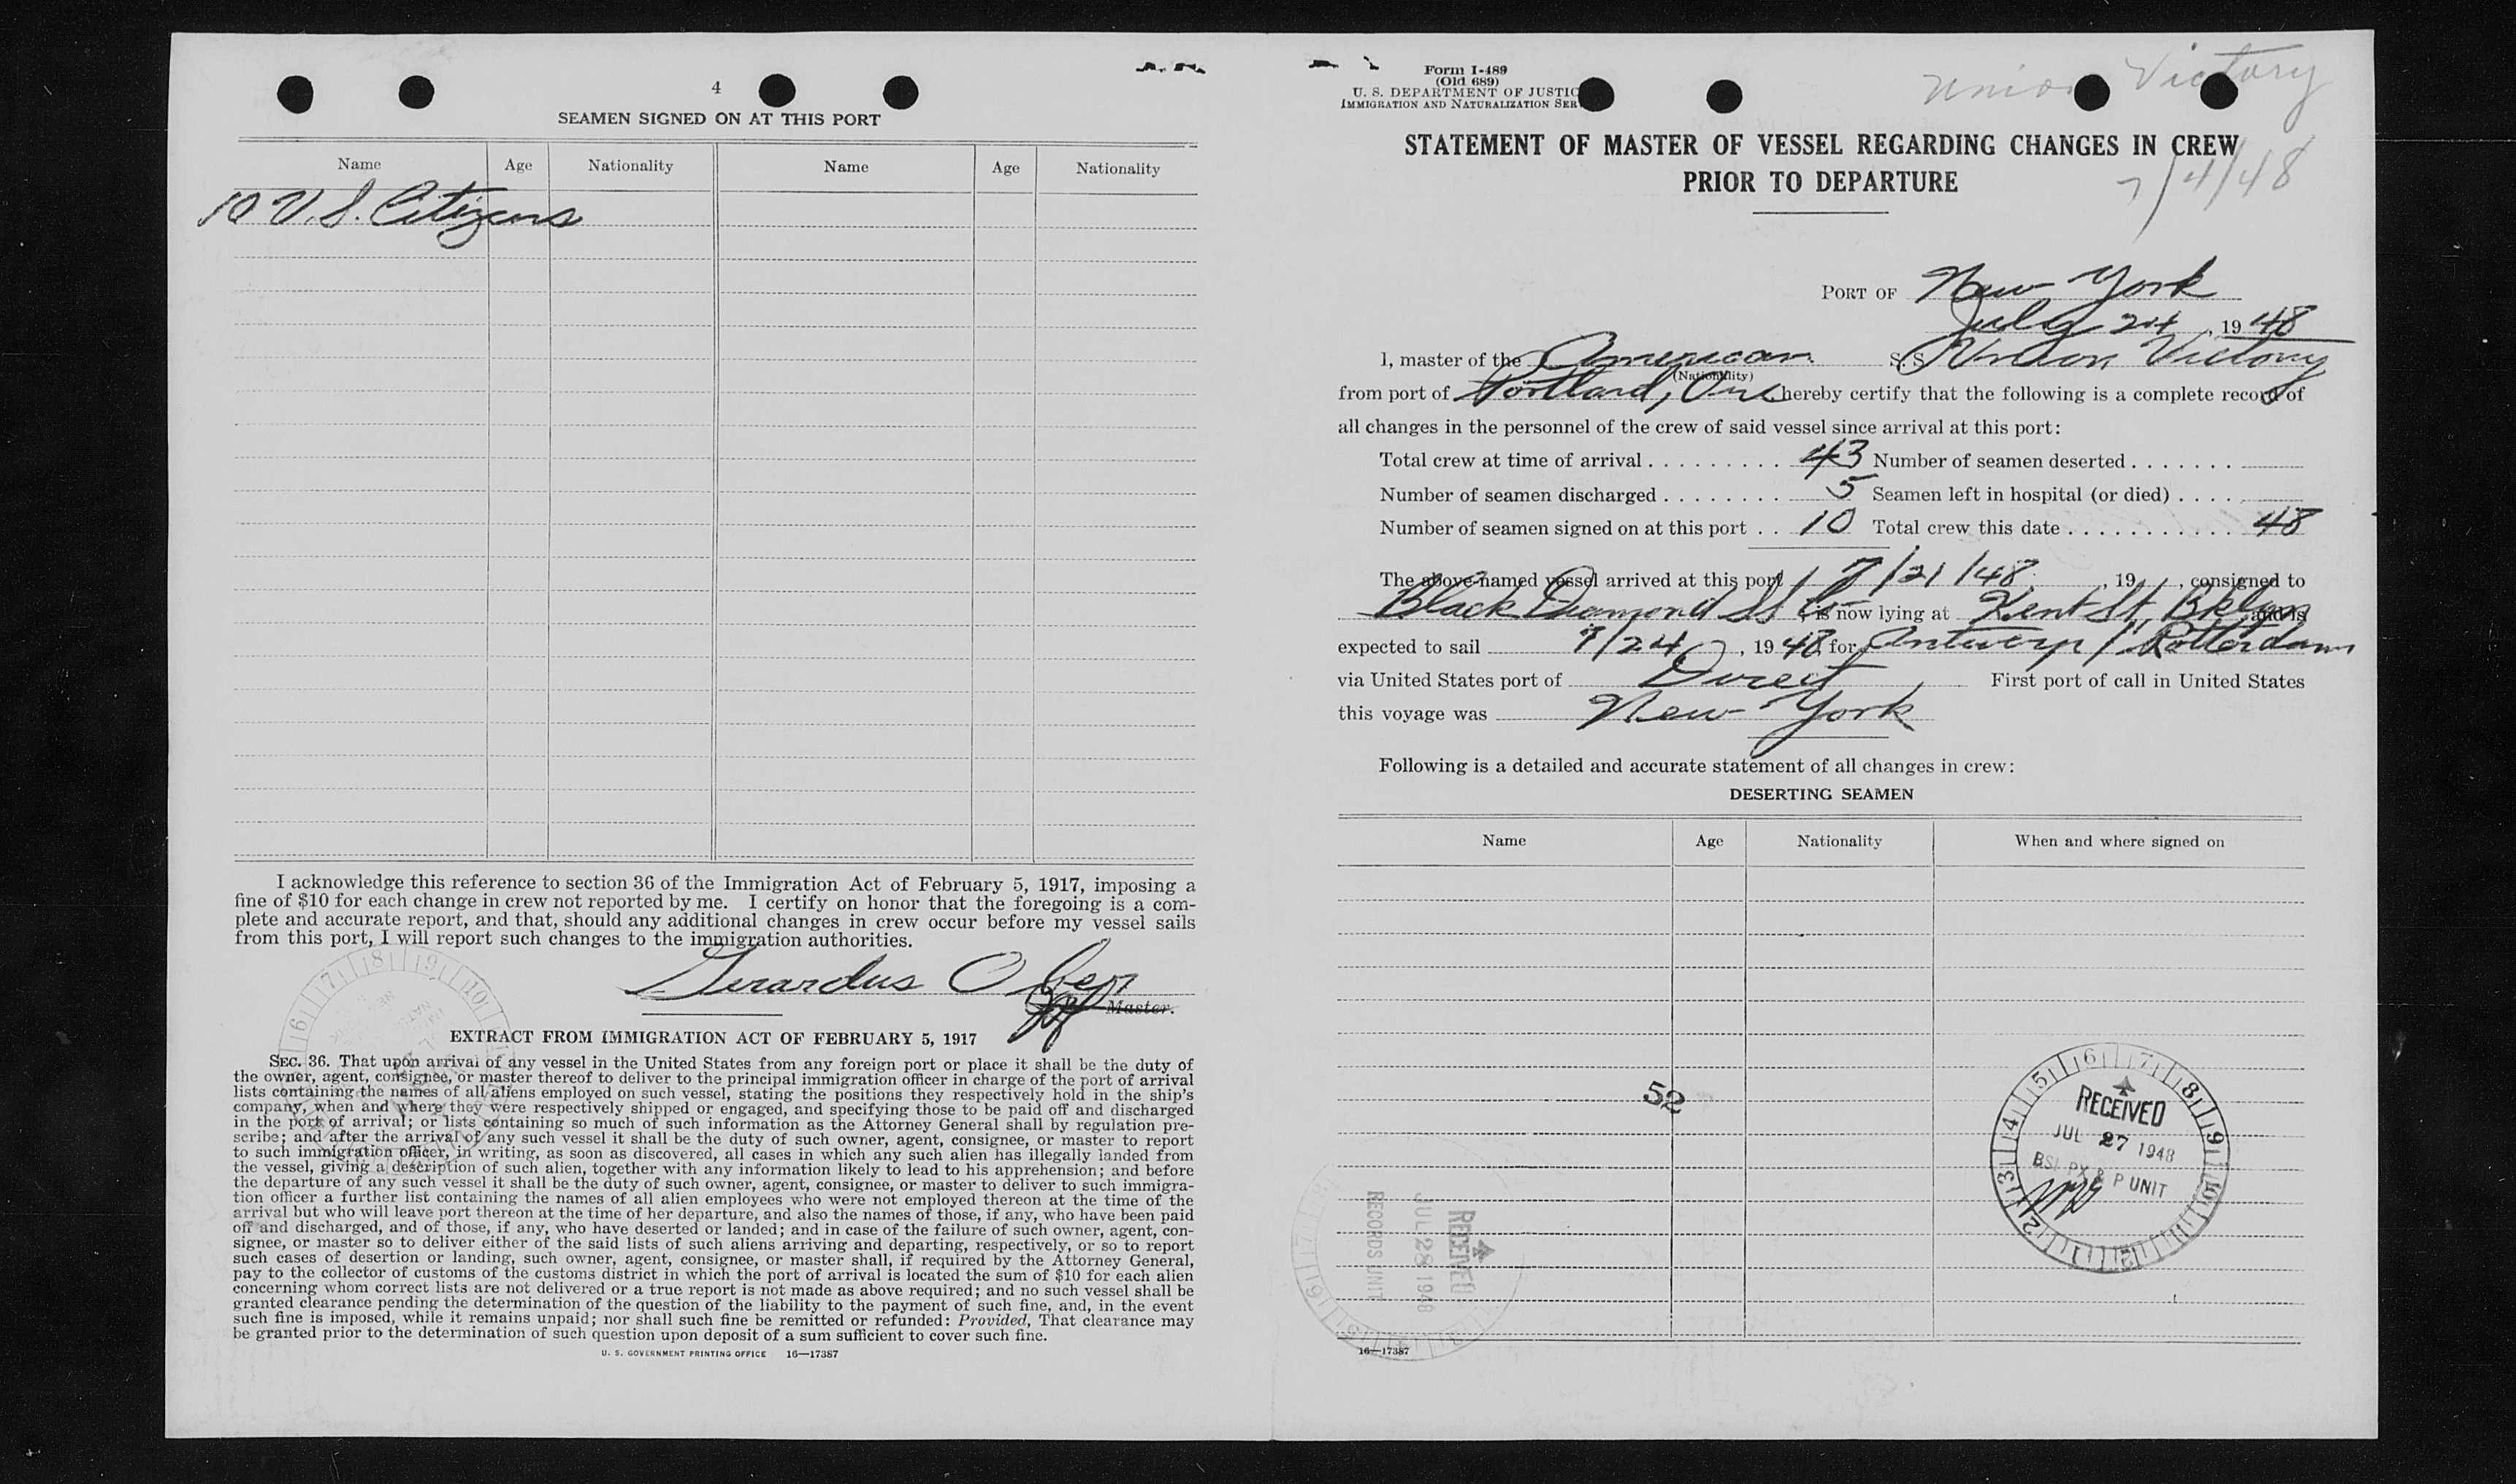 4
SEAMEN SIGNED ON AT THIS PORT
Name Age Nationality Name Age Nationality
10 U.S. Citizens
I acknowledge this reference to section 36 of the Immigration Act of February 5, 1917, imposing a
fine of $10 for each change in crew not reported by me. I certify on honor that the foregoing is a com-
plete and accurate report, and that, should any additional changes in crew occur before my vessel sails
from this port, I will report such changes to the immigration authorities.
Gerardus
Master.
EXTRACT FROM IMMIGRATION ACT OF FEBRUARY 5, 1917
SEC. 36. That upon arrival of any vessel in the United States from any foreign port or place it shall be the duty of
the owner, agent, consignee, or master thereof to deliver to the principal immigration officer in charge of the port of arrival
lists containing the names of all aliens employed on such vessel, stating the positions they respectively hold in the ship's
company, when and where they were respectively shipped or engaged, and specifying those to be paid off and discharged
in the port of arrival; or lists containing so much of such information as the Attorney General shall by regulation pre-
scribe; and after the arrival of any such vessel it shall be the duty of such owner, agent, consignee, or master to report
to such immigration officer, in writing, as soon as discovered, all cases in which any such alien has illegally landed from
the vessel, giving a description of such alien, together with any information likely to lead to his apprehension; and before
the departure of any such vessel it shall be the duty of such owner, agent, consignee, or master to deliver to such immigra-
tion officer a further list containing the names of all alien employees who were not employed thereon at the time of the
arrival but who will leave port thereon at the time of her departure, and also the names of those, if any, who have been paid
off and discharged, and of those, if any, who have deserted or landed; and in case of the failure of such owner, agent, con-
signee, or master so to deliver either of the said lists of such aliens arriving and departing, respectively, or so to report
such cases of desertion or landing, such owner, agent, consignee, or master shall, if required by the Attorney General,
pay to the collector of customs of the customs district in which the port of arrival is located the sum of $10 for each alien
concerning whom correct lists are not delivered or a true report is not made as above required; and no such vessel shall be
granted clearance pending the determination of the question of the liability to the payment of such fine, and, in the event
such fine is imposed, while it remains unpaid; nor shall such fine be remitted or refunded: Provided, That clearance may
be granted prior to the determination of such question upon deposit of a sum sufficient to cover such fine.
U. S. GOVERNMENT PRINTING OFFICE 16—17387
Form I-489
(Old 689)
U. S. DEPARTMENT OF JUSTIC
IMMIGRATION AND NATURALIZATION SER
Union Victory
7/4/48
STATEMENT OF MASTER OF VESSEL REGARDING CHANGES IN CREW
PRIOR TO DEPARTURE
PORT OF New York
July 24, 19 48
I, master of the American S. S. Union Victory
(Nationality)
from port of Portland, Ore hereby certify that the following is a complete record of
all changes in the personnel of the crew of said vessel since arrival at this port:
Total crew at time of arrival 43 Number of seamen deserted
Number of seamen discharged 5 Seamen left in hospital (or died)
Number of seamen signed on at this port 10 Total crew this date 48
The above-named vessel arrived at this port 7/21/48, 19 , consigned to
Black Diamond SS Co, is now lying at Kent St, Bklyn and is
expected to sail 7/24, 19 48, for Antwerp / Rotterdam
via United States port of Direct First port of call in United States
this voyage was New York
Following is a detailed and accurate statement of all changes in crew:
DESERTING SEAMEN
Name Age Nationality When and where signed on
52
RECEIVED
JUL 27 1948
BSI PX & P UNIT
RECEIVED
JUL 28 1948
RECORDS UNIT
16—17387